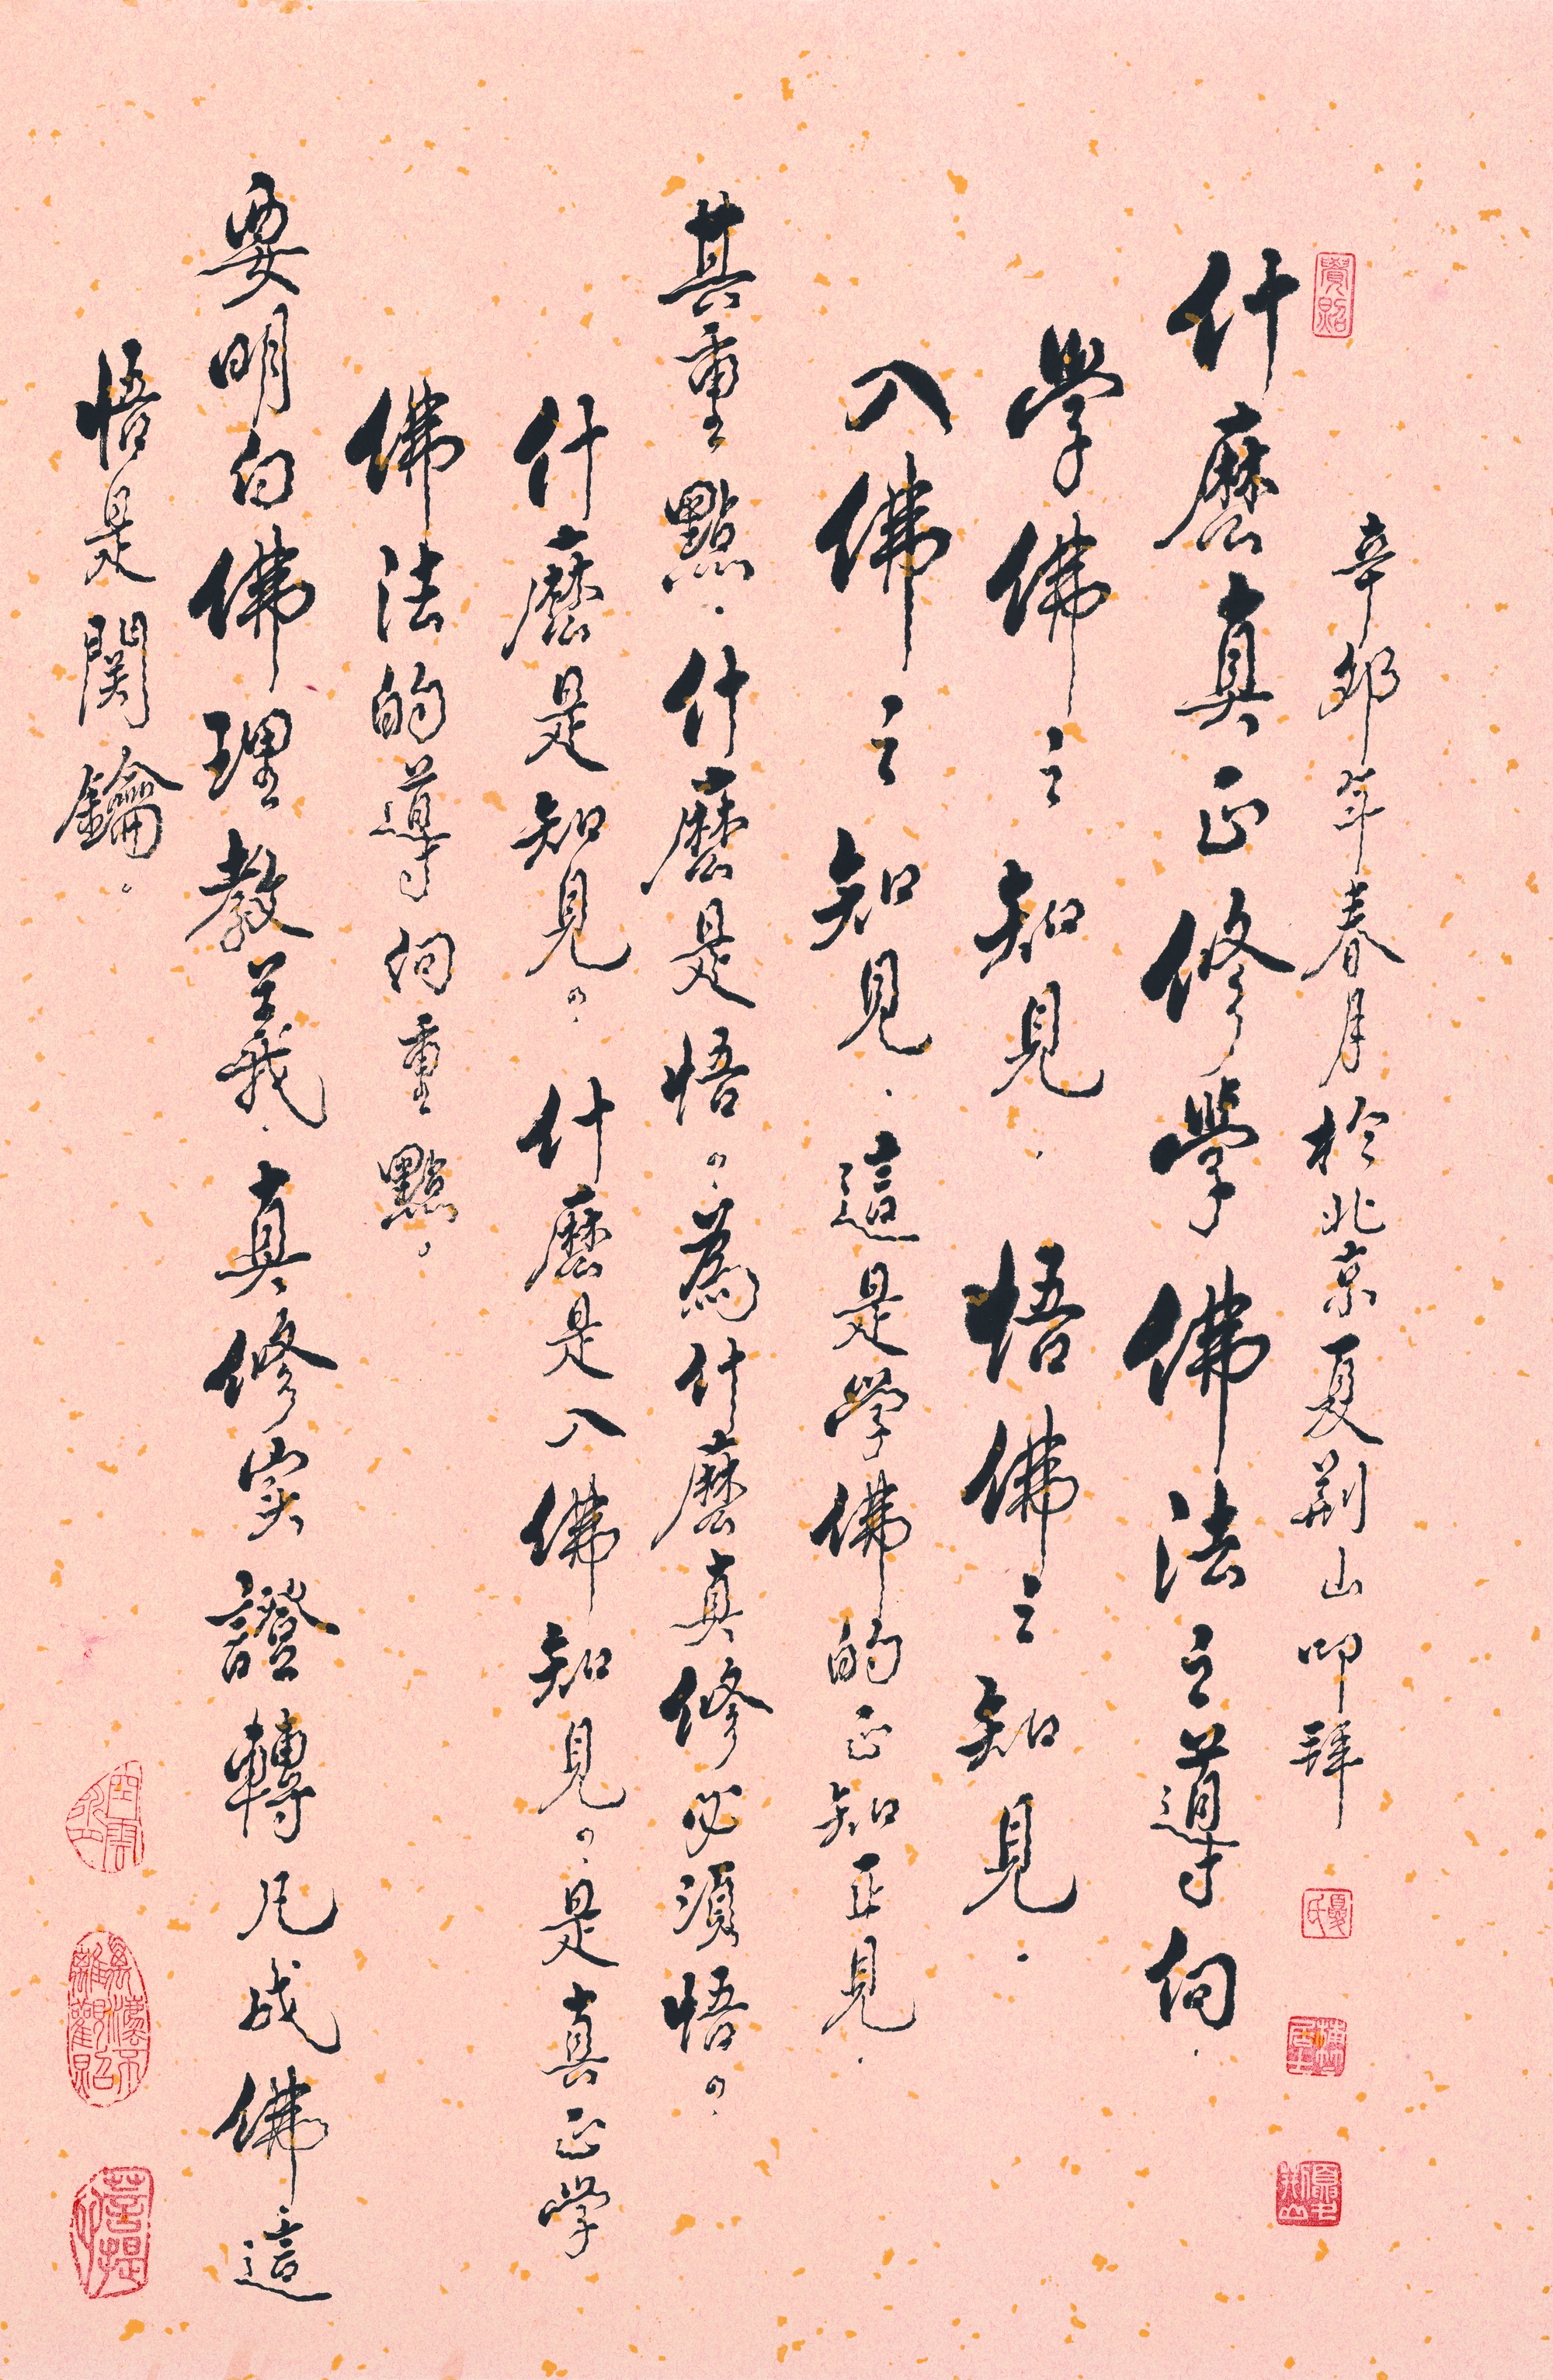 辛卯年春月於北京夏荆山叩拜
什麽真正修學佛法之導向.
學佛之知見. 悟佛之知見.
入佛之知見. 這是學佛的正知正見.
其重點. 什麽是悟。為什麽真修必須悟。
什麽是知見。什麽是入佛知見。是真正學
佛法的導向重點。
要明白佛理教義. 真修实證轉凡成佛這
悟是関鑰。